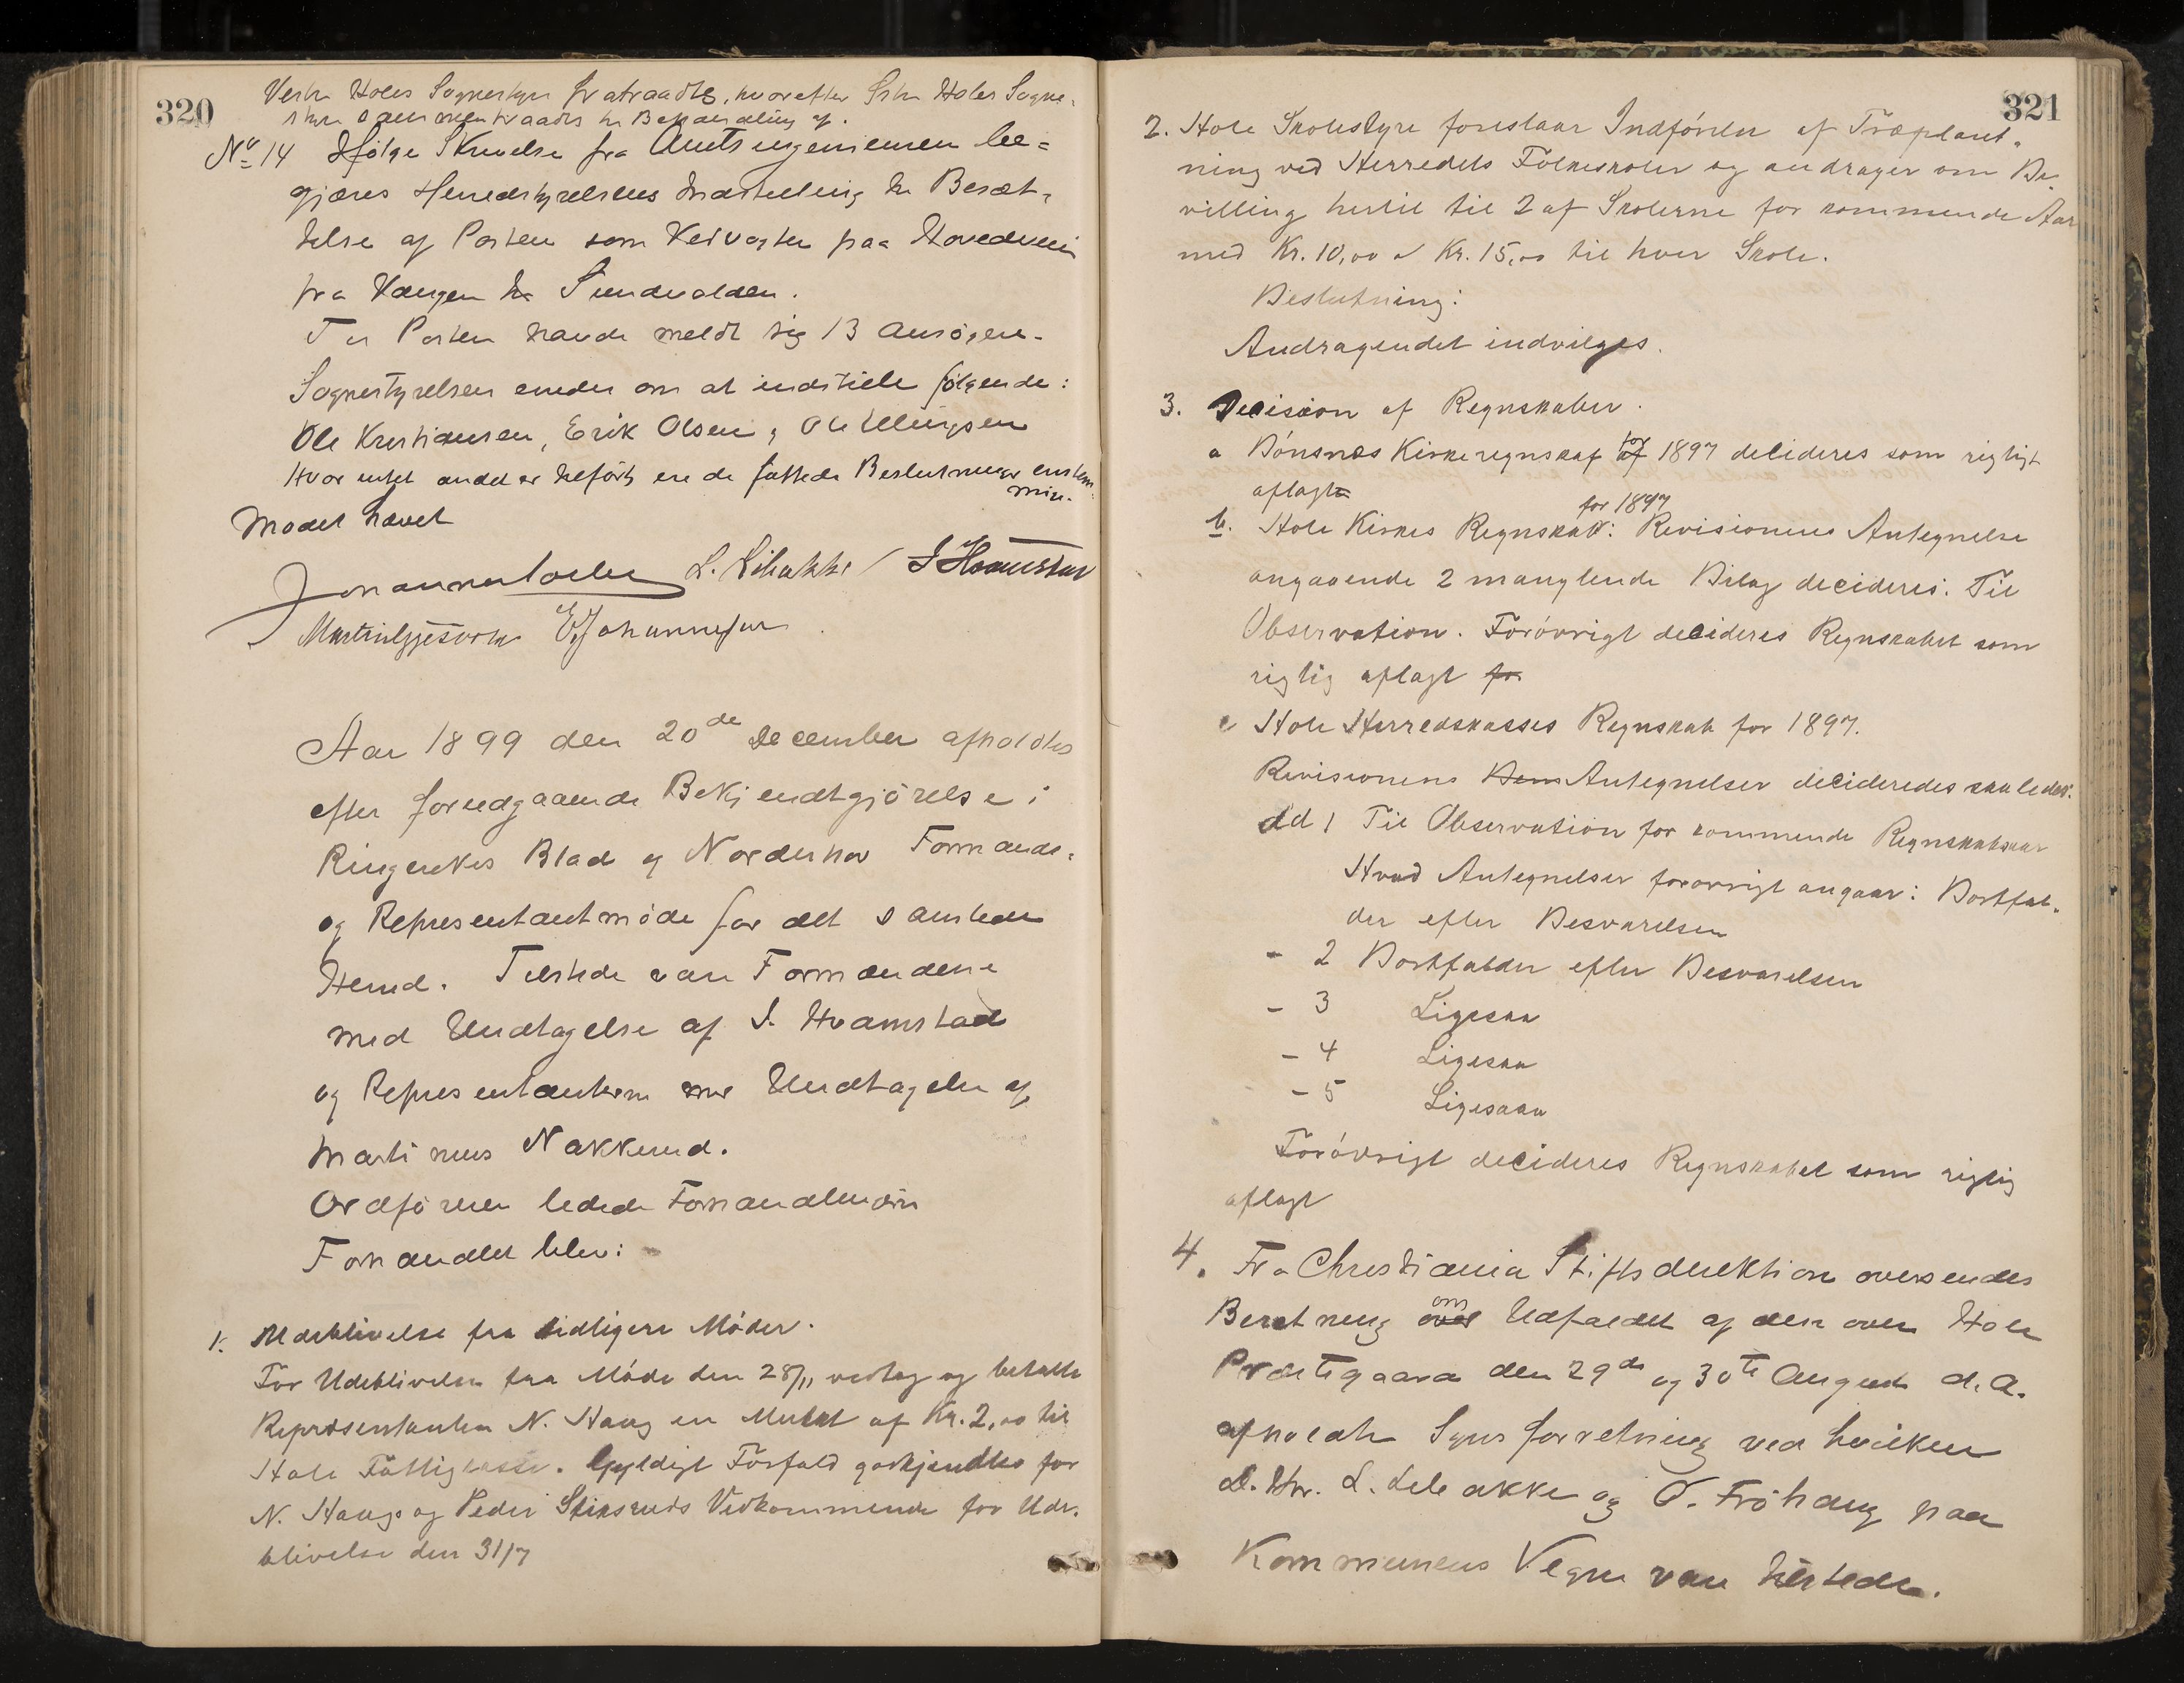 320
Vestre Holes Sognestyre fratraadte, hvorefter Østre Holes Sogne-
styre sammentraadte til Behandling af.
No 14 Ifølge Skrivelse fra Amtsingeniøren be-
gjæres Herredstyrelsens Indstilling til Besæt-
telse af Posten som Veivogter paa Hovedveien
fra Vængen til Sundvolden.
Til Posten havde meldt sig 13 Ansøgere.
Sognestyrelsen enedes om at indstille følgende:
Ole Kristiansen, Erik Olsen, Ole Ellingsen
Hvor intet andet er tilført, ere de fattede Beslutninger enstem-
mige.
Mødet hævet
L. Libakke / S Hvamstad
Martin Gjesvold E. Johannesen
Aar 1899 den 20de December afholdtes
efter foredgaaende Bekjendtgjørelse i
Ringerikes Blad og Norderhov Formands-
og Representantmøde for det samlede
Herred. Tilstede vare Formændene
med Undtagelse af S. Hvamstad
og Representanterne med Undtagelse af
Martinus Nakkerud.
Ordføreren ledede Forhandlingerne
Forhandlet blev:
1. Udeblivelse fra tidligere Møder.
For Udeblivelse fra Møde den 28/11 vedtog og betalte
Repræsentanten N. Haug en Mulkt af Kr. 2,00 til
Hole Fattigkasse. Gyldigt Forfald godkjendtes for
N. Haugs og Peder Stiksruds Vedkommende for Ude-
blivelse den 31/7
321
2. Hole Skolestyre foreslaar Indførelse af Træplant-
ning ved Herredets Folkeskoler og andrager om Be-
villing hertil til 2 af Skolerne for kommende Aar
med Kr. 10,00 a Kr. 15,00 til hver Skole.
Beslutning:
Andragendet indvilges.
3. Decision af Regnskaber.
a Bønsnæs Kirkeregnskap for af 1897 decideres som rigtigt
aflagt
for 1897
b. Hole Kirkes Regnskab: Revisionens Antegnelse
angaaende 2 manglende Bilag decideres: Til
Observation. Forøvrigt decideres Regnskabet som
rigtig aflagt for
c Hole Herredskasses Regnskab for 1897.
Revisionens Antegnelser decideredes saaledes:
Ad 1 Til Observation for kommende Regnskabsaar
Hvad Antegnelser forøvrigt angaar: Bortfal-
der efter Besvarelsen
- 2 Bortfalder efter Besvarelsen
- 3 Ligesaa
- 4 Ligesaa
- 5 Ligesaa
Forøvrigt decideres Regnskabet som rigtig
aflagt
4. Fra Christiania Stiftsdirektion oversendes
Beretning over om Udfaldet af den over Hole
Præstegaard den 29de og 30te August d. A.
afholdte Synsforretning ved hvilken
D. Hr. L. Libakke og O. Frøhaug paa
Kommunens Vegne vare tilstede.